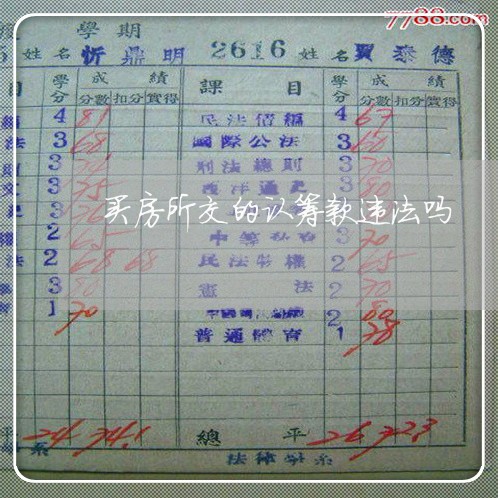 7788.com
學期
姓名 忻鼎明 2616 姓名 賈泰德
目 學分 成績 課目 學分 成績
分數 扣分 實得 分數 扣分 實得
4 81 民法債編 4 67
法 3 68 國際公法 3 60
3 刑法總則 3 70
3 75 西洋通史 3 80
買房所交的认筹款违法吗
2 65 3 70
法 2 68 68 民法物權 2 65
3 80 憲法 2 70
1 70 2 80
普通體育 1 78
平 24 74.1 總平 26 72.3
系 法律學系